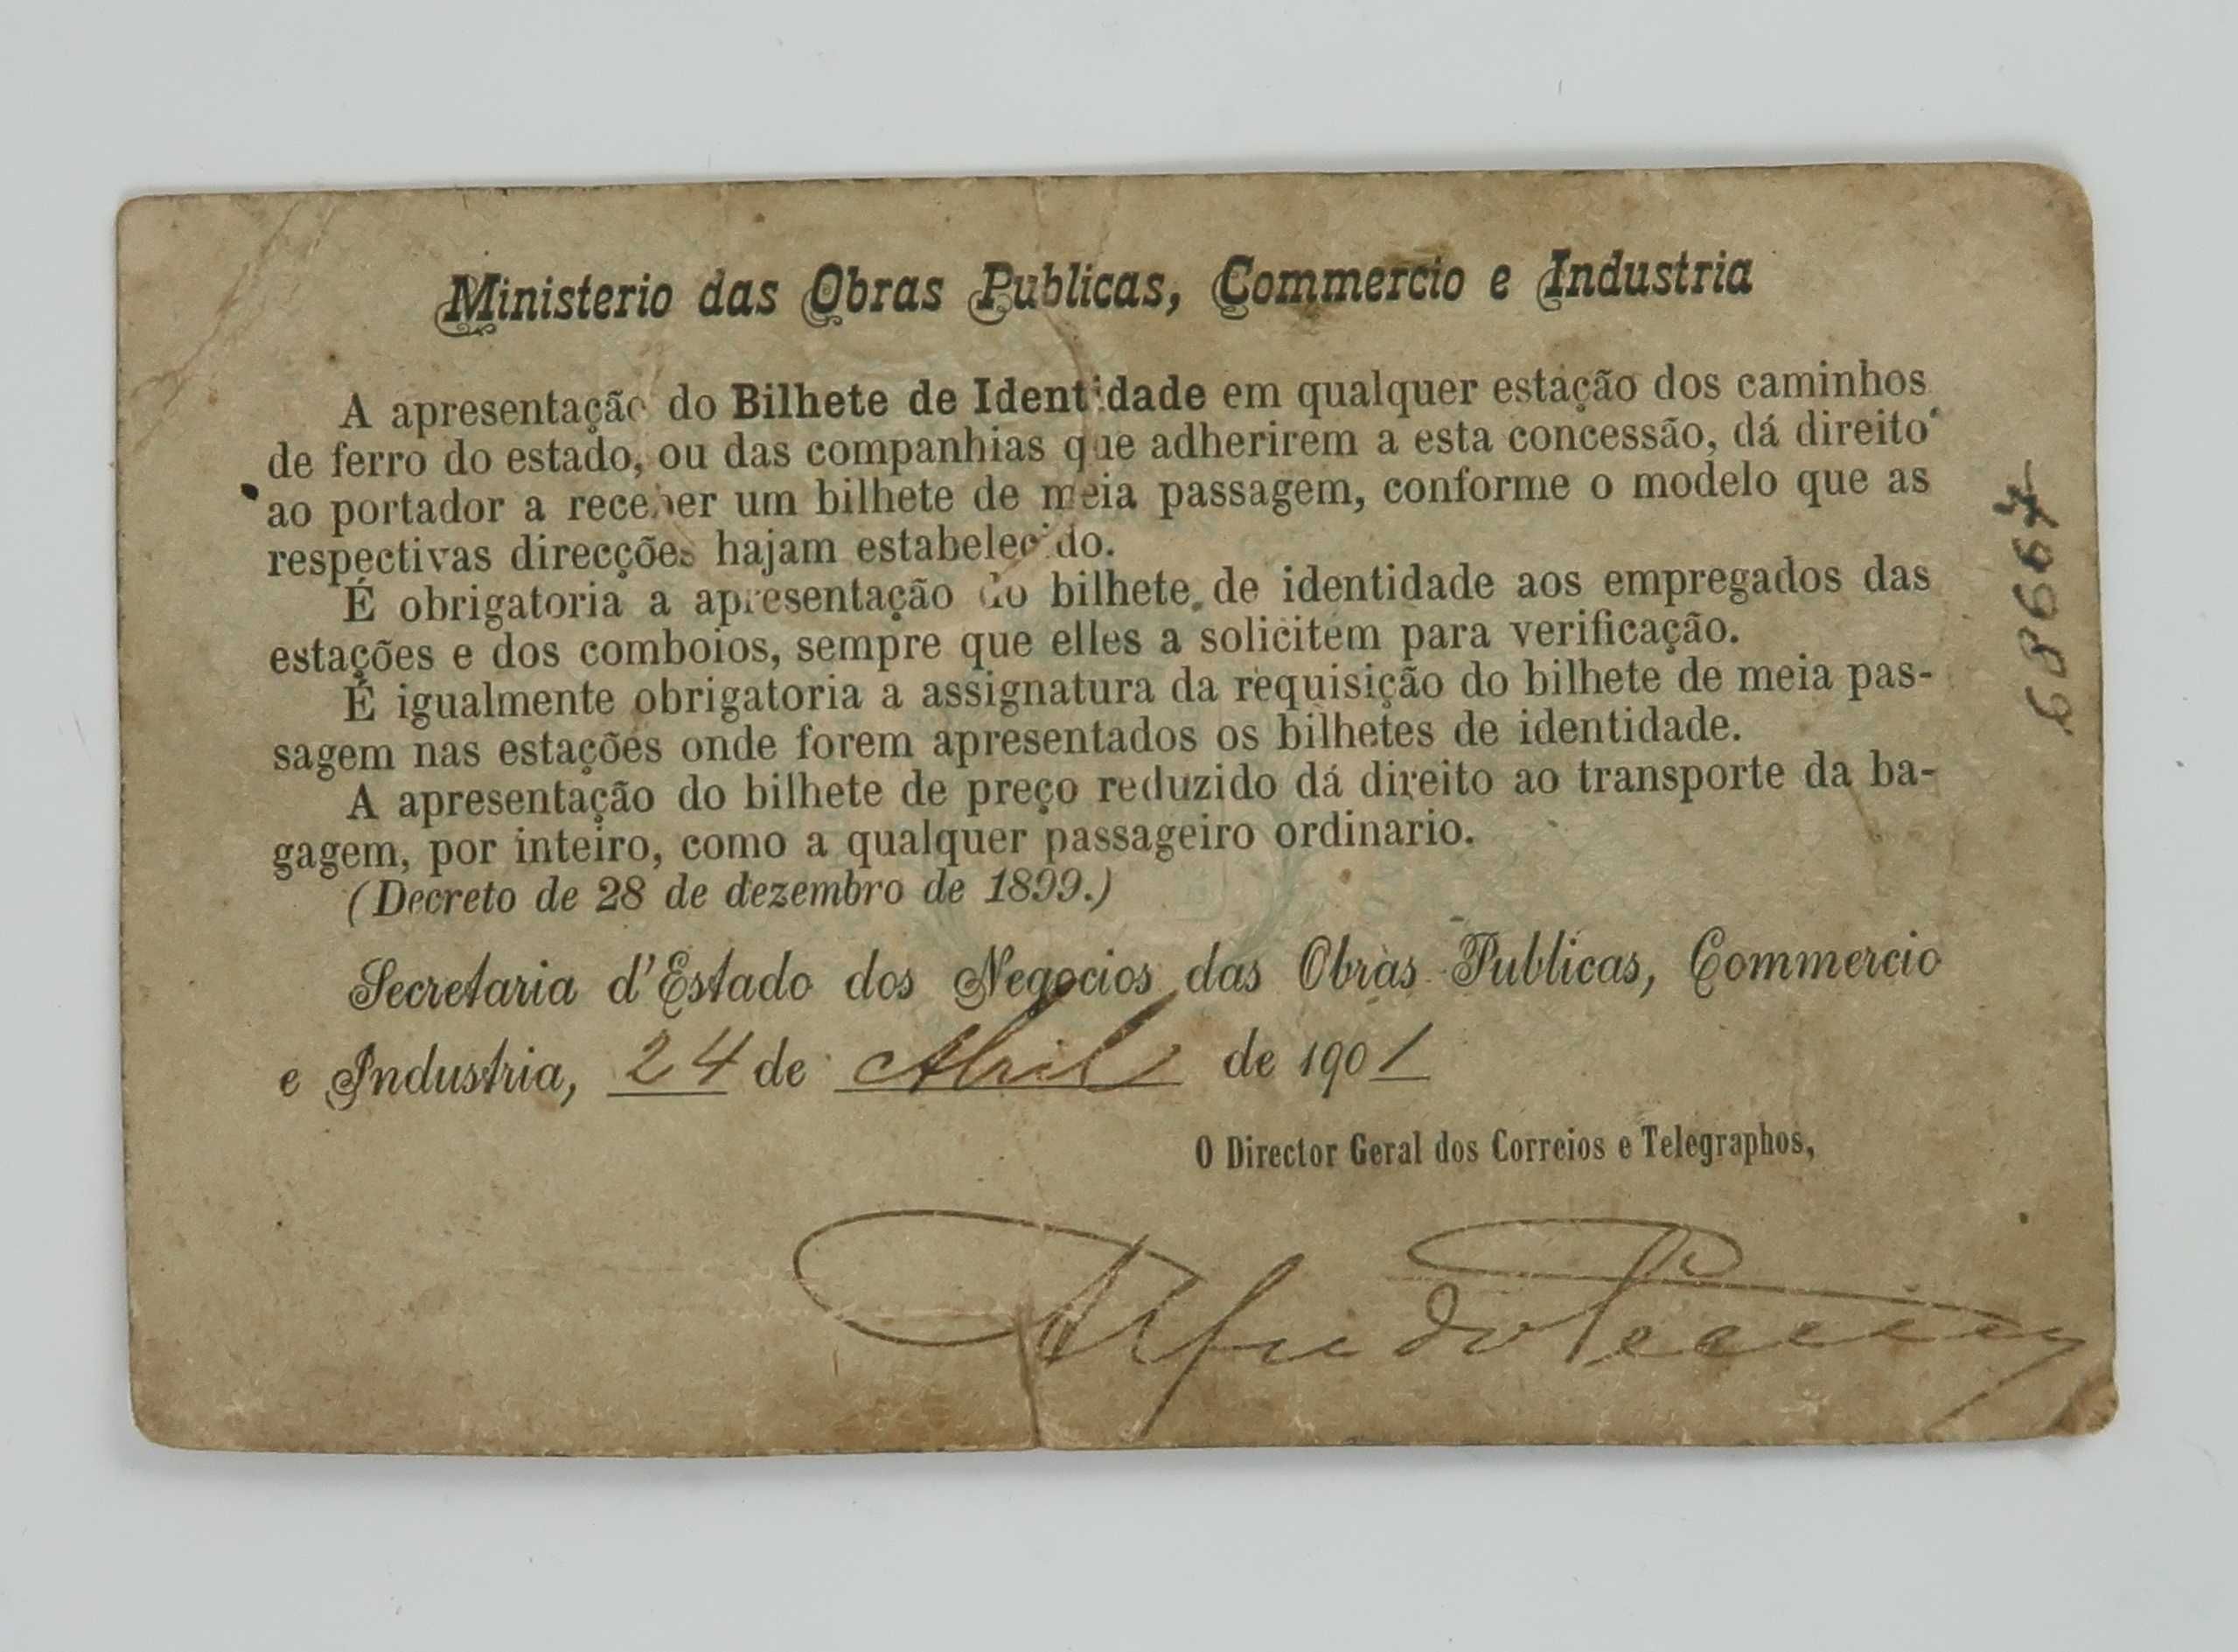 Ministerio das Obras Publicas, Commercio e Industria
A apresentação do Bilhete de Identidade em qualquer estação dos caminhos
de ferro do estado, ou das companhias que adherirem a esta concessão, dá direito
ao portador a receber um bilhete de meia passagem, conforme o modelo que as
respectivas direcções hajam estabelecido.
É obrigatoria a apresentação do bilhete de identidade aos empregados das
estações e dos comboios, sempre que elles a solicitem para verificação.
É igualmente obrigatoria a assignatura da requisição do bilhete de meia pas-
sagem nas estações onde forem apresentados os bilhetes de identidade.
A apresentação do bilhete de preço reduzido dá direito ao transporte da ba-
gagem, por inteiro, como a qualquer passageiro ordinario.
(Decreto de 28 de dezembro de 1899.)
Secretaria d'Estado dos Negocios das Obras Publicas, Commercio
e Industria, 24 de Abril de 1901
O Director Geral dos Correios e Telegraphos,
Alfredo Pereira